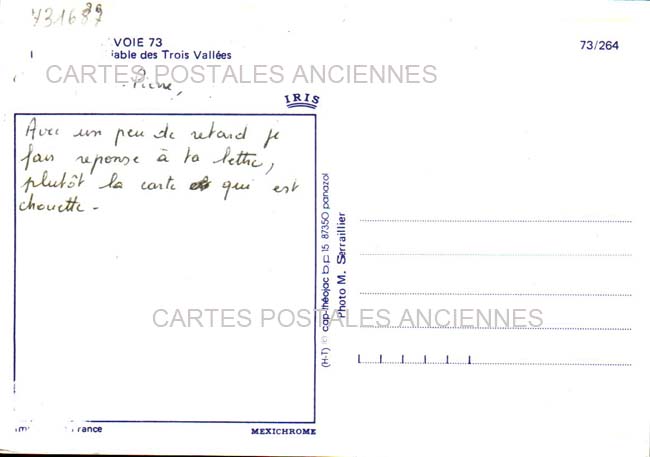 731687
VOIE 73
iable des Trois Vallées
73/264
CARTES POSTALES ANCIENNES
Pierre,
IRIS
Avec un peu de retard je
fais reponse à ta lettre,
plutôt la carte qui est
chouette -
(H-T) © cap-théojac b.p. 15 87350 panazol
Photo M. Serraillier
CARTES POSTALES ANCIENNES
Im rance
MEXICHROME